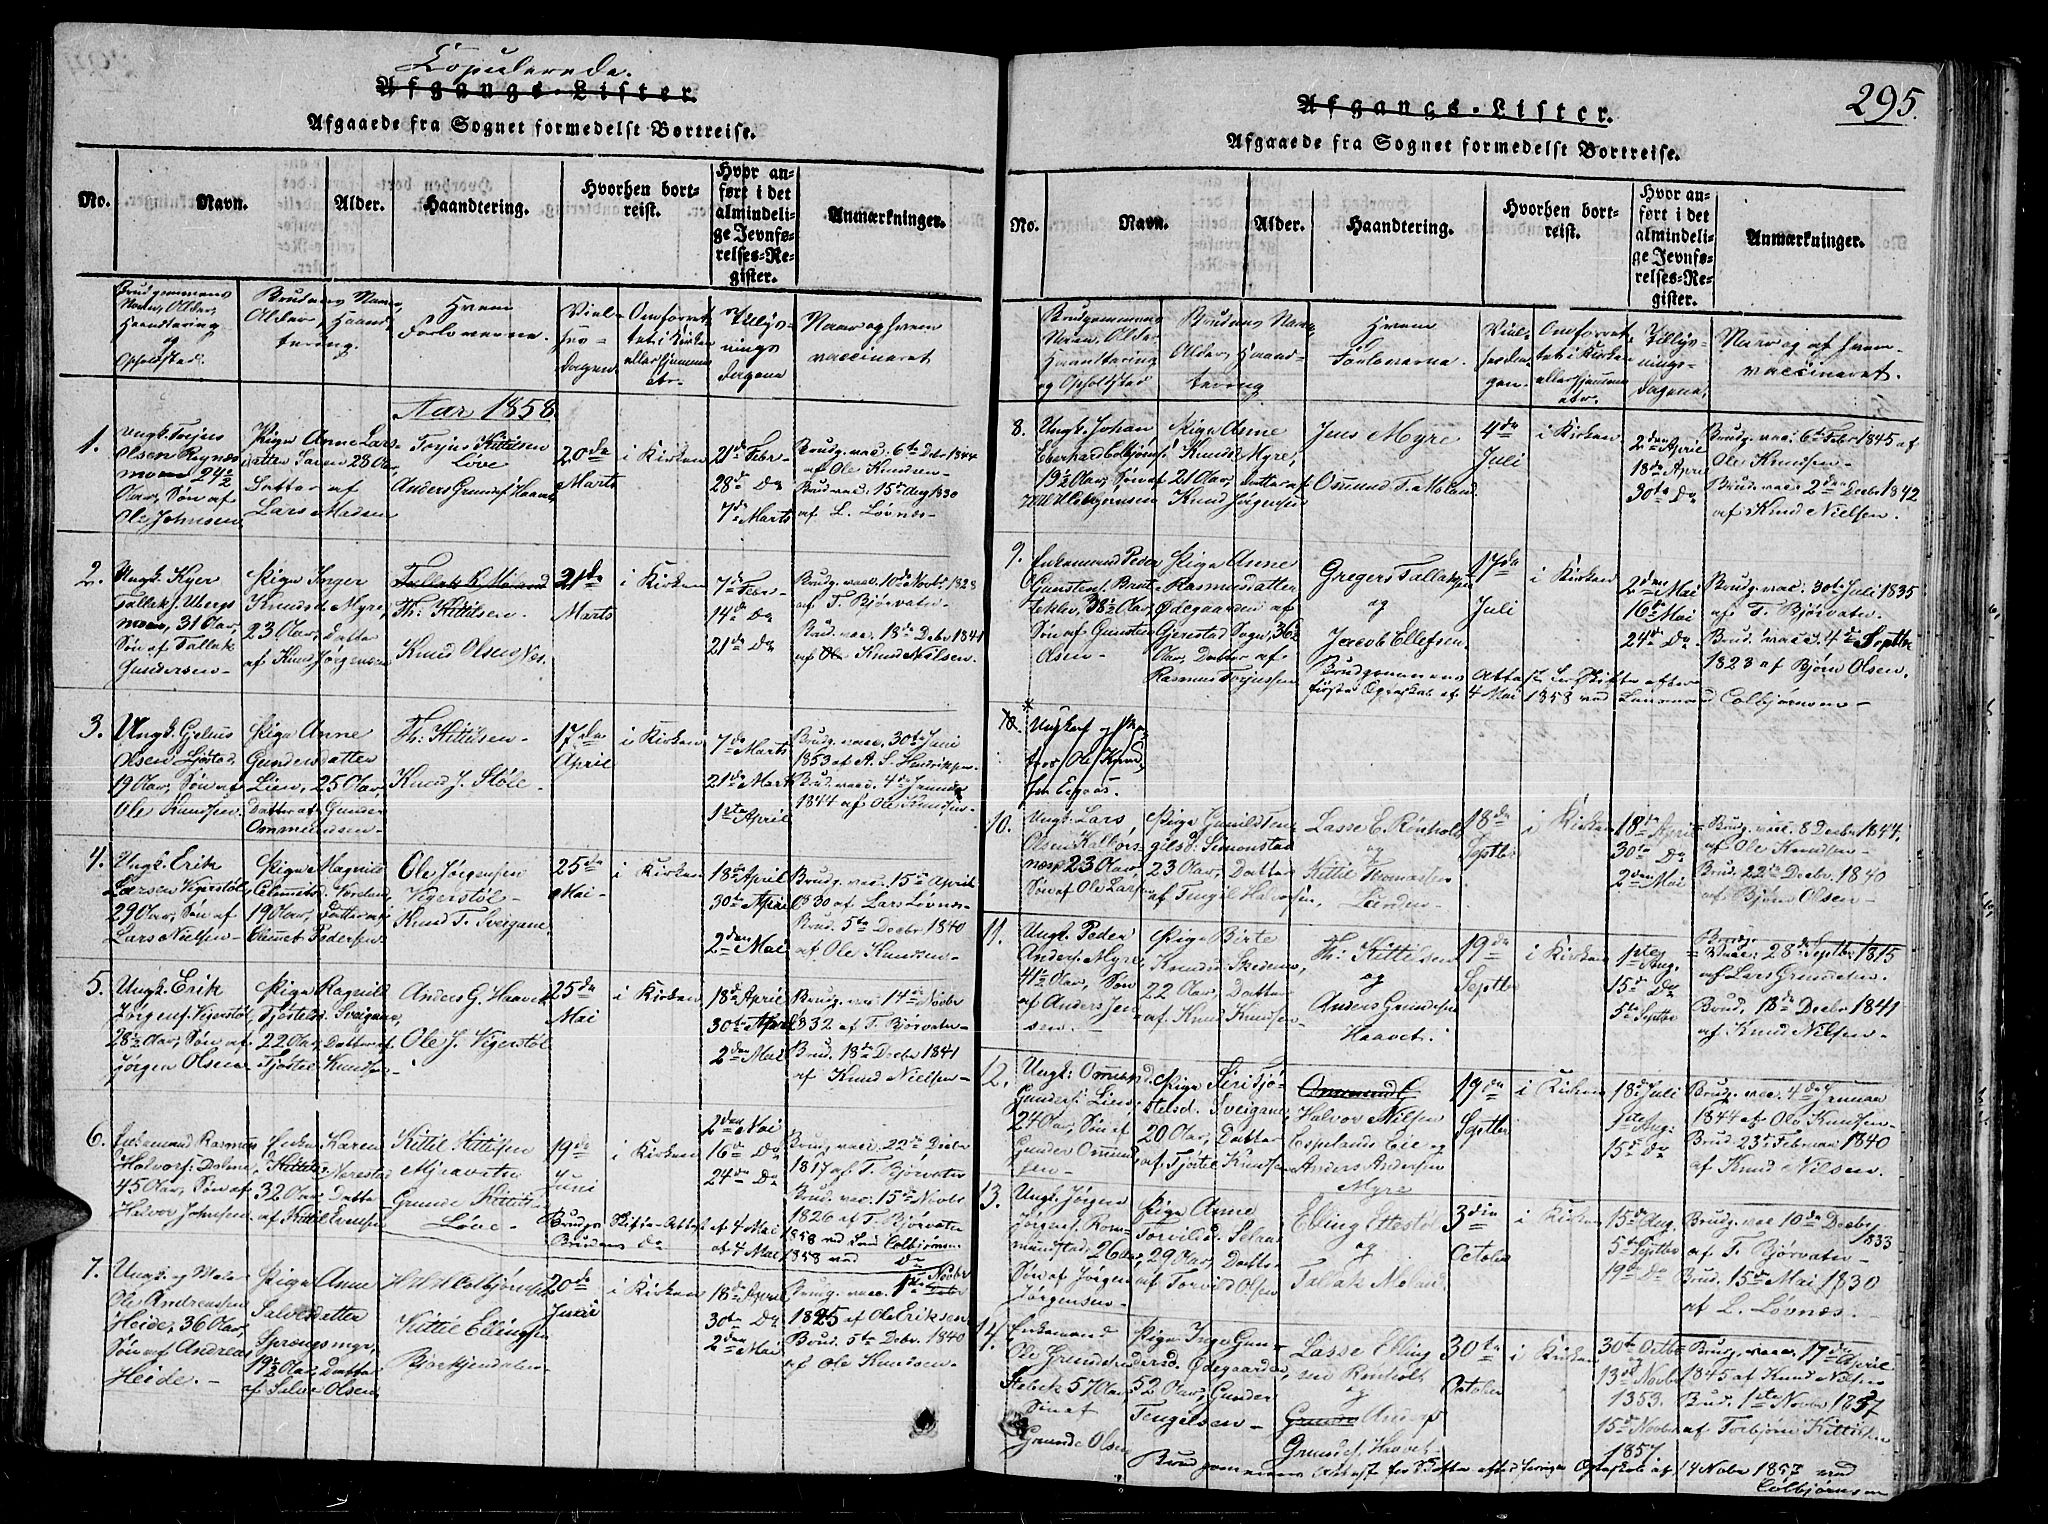 Copulerede.
Afgangs-Lister.
Afgaaede fra Sognet formedelst Bortreise.
No.
Navn.
Alder.
Haandtering.
Hvorhen bort-
reist.
Hvor an-
ført i det
almindeli-
ge Jevnfø-
relses-Re-
gister.
Anmærkninger.
Brudgommens
Navn, Alder,
Haandtering
og
Opholdsted.
Brudens Navn,
Alder, Haand-
tering.
Hvem
Forloverne.
Viel-
ses-
dagen
Om forret-
tet i Kirken
eller hjemme
etc.
Tillys-
nings
dagene
Naar og hvem
vaccineret
Aar 1858
1.
Ungk. Torjus
Olsen
24½
Aar, Søn af
Ole Johnsen
Pige Anne Lars-
datter 28 Aar,
Datter af
Lars Madsen
Torjus Kittilsen
Løve
Anders Grundes. Haavet
20de
Marts
i Kirken
21de Febr
28de Do
7de Marts
Brudg. vac. 6te Debr 1844
af Ole Knudsen
Brud vac. 15de Aug 1830
af L. Løvnæs-
2.
Ungk. Kjer
Tallaks. Ubergs
moen, 31 Aar,
Søn af Tallak
Gundersen
Pige Inger
Knudsd. Myre,
23 Aar, Datter
af Knud Jørgensen
Th: Kittilsen
Knud Olsen Næs.
21de
Marts
i Kirken
7de Febr
14de Do
21de Do
Brudg. vac. 10de Novbr 1828
af T. Bjørvatn
Brud. vac. 18de Debr 1841
af Knud Nilsen
3.
Ungk. Gjelius
Olsen Lystad,
19 Aar, Søn af
Ole Knudsen
Pige Anne
Gundersdatter
Lien, 25 Aar,
Datter af Gunder
Ommundsen
Th. Kittilsen
Knud J. Støle
17de
April
i Kirken
7de Marts
21de Marts
1ste April
Brudg. vac. 30te Juni
1853 af A. S. Henriksen
Brud vac. 4de Januar
1844 af Ole Knudsen
4.
Ungk. Erik
Larsen Vigerstøl
29 Aar, Søn af
Lars Nielsen
Pige Magnild
Clemetsd. Vorden,
19 Aar, Datter af
Clemet Pedersen
Ole Jørgensen
Vigerstøl
Knud T. Sveigane
25de
Mai
i Kirken
18de April
30te April
2den Mai
Brudg. vac. 15de April
1830 af Lars Løvnæs
Brud. 5te Decbr 1840
af Ole Knudsen
5.
Ungk. Erik
Jørgens. Vigerstøl,
28½ Aar, Søn af
Jørgen Olsen
Pige Ragnild
Tjøstelsd. Sveigane,
22 Aar, Datter af
Tjøstel Knudsen
Anders G. Haavet
Ole J. Vigerstøl
25de
Mai
i Kirken
18de April
30te April
2den Mai
Brudg. vac. 14de Novbr
1832 af T. Bjørvatn
Brud. 18de Decbr 1841
af Knud Nielsen
6.
Enkemand Rasmus
Halvors. Dalene
45 Aar, Søn af
Halvor Johnsen
Enken Karen
Kittelsd. Nærestad
32 Aar, Datter
af Kittil Evensen
Kittil Kittilsen
Mjaavatn
Grunde Kittilsen
Løve
19de
Juni
i Kirken
2den Mai
16de Do
24de Do
Brudg. vac. 22de Decbr
1817 af T. Bjørvatn
Brud. vac. 15de Novbr
1826 af T. Bjørvatn
Brudgs Skifte Attest af 4 Mai 1858 ved Colbjørnsen
Brudens Do af 4 Mai 1858 ved Do
7.
Ungk. og Maler
Ole Andreassen
Heide, 36 Aar,
Søn af Andreas
Heide.
Pige Anne
Salvesdatter
Sprøngsmyr,
19½ Aar, Datter
af Salve Olsen
Colbjørnsen
Kittil Ellingsen
Bjørkjendalen
20de
Juni
i Kirken
18de April
30te Do
2den Mai
Brudg. vac. 1ste Novbr
1825 af Ole Eriksen
Brud. 5te Decbr 1840
af Ole Knudsen
295.
Afgangs-Lister.
Afgaaede fra Sognet formedelst Bortreise.
No.
Navn.
Alder.
Haandtering.
Hvorhen bort-
reist.
Hvor an-
ført i det
almindeli-
ge Jevnfø-
relses-Re-
gister.
Anmærkninger.
Brudgommens
Navn, Alder,
Haandtering
og Opholdsted
Brudens Navn
Alder, Haand-
tering
Hvem
Forloverne.
Viel-
sesda-
gen
Om forret-
tet i Kirken
eller hjemme
etc.
Tillys-
nings-
dagene.
Naar og af hvem
vaccineret.
8.
Ungk. Johan
Eberhard Colbjørns.
19½ Aar, Søn af
Pige Anne
Knudsd. Myre,
21 Aar, Datter af
Knud Jørgensen
Jens Myre
Osmund T. Moland
4de
Juli
i Kirken
2den April
18de April
30te Do
Brudg. vac. 6te Febr 1845 af
Ole Knudsen
Brud. vac. 2den Decbr 1842
af Knud Nielsen.
9.
Enkemand Peder
Gunstens. Brat-
tekler, 38½ Aar,
Søn af Gunsten
Olsen
Pige Anne
Rasmusdatter
Ødegaarden af
Gjerestad Sogn, 36½
Aar, Datter af
Rasmus Torjussen
Gregers Tallaksen
og
Jacob Ellefsen
17de
Juli
i Kirken
2den Mai
16de Mai
24de Do
Brudg. vac. 30te Juli 1835
af T. Bjørvatn
Brud. vacc. 4de Septbr
1823 af Bjørn Olsen.
Brudgommens Attest for Skifte efter
første Ægteskab af 4 Mai 1858 ved Lensmand Colbjørnsen
10.
Ungkarl og
Ole
10.
Ungk. Lars
Olsen Kalvøs-
næs 23 Aar,
Søn af Ole Larsen
Pige Gunild Ten-
gilsd. Simonstad
23 Aar, Datter
af Tengil Halvorsen,
Lasse E. Rønholt
og
Kittil Thomassen
Lunden
18de
Septbr
i Kirken
18de April
30te Do
2den Mai
Brudg. vac. 8 Decbr 1844
af Ole Knudsen
Brud. 22de Decbr. 1840
af Bjørn Olsen
11.
Ungk. Peder
Anders. Myre
41½ Aar, Søn
af Anders Jen-
sen.
Pige Birte
Knudsd. Skeden,
22 Aar, Datter
af Knud Knudsen
Th: Kittilsen
og
Anders Grundesen
Haavet.
19de
Septbr
i Kirken
1ste Aug.
15de Do
5te Septbr
Brudg.
vac. 28de Septbr 1815
af Lars Grundesen
Brud. 18de Decbr 1841
af Knud Nielsen
12.
Ungk: Ommund
Gunders. Lien,
24 Aar, Søn af
Gunder Ommund-
sen
Pige Siri Tjø-
stelsd. Sveigane,
20 Aar, Datter
af Tjøstel Knudsen
Ommund G
Halvor Nilsen
Espelands Eie og
Anders Andersen
Myre
19de
Septbr
i Kirken
18de Juli
1ste Aug:
15de Do
Brudg. vac. 4de Januar
1844 af Ole Knudsen
Brud. 23de Februar 1840
af Knud Nilsen.
13.
Ungk. Jørgen
Jørgens. Rom-
mundstad, 26 Aar,
Søn af Jørgen
Jørgensen
Pige Anne
Torvildsd. Selaas
29 Aar, Datter
af Torvild Olsen
Elling Ettestøl
og
Tallak Moland
3die
October
i Kirken
15de Aug.
5te Septbr
19de Do
Brudg. vac 10de Decbr
1833
af T. Bjørvatn
Brud. 15de Mai 1830
af L. Løvnæs
14.
Enkemand
Ole Grundesen
57 Aar,
Søn af
Grunde Olsen
Pige Inge Gun-
dersd. Ødegaarden,
52 Aar, Gunder
Tengelsen
Lasse Elling
sen Rønholt
og
Grunde Anders
Grundes. Haavet
30te
October
i Kirken
30te Octbr
13de Novbr
1853.
15de Novbr
1857
Brudg. vacc. 17de April
1845 af Knud Nilsen
Brud. 1ste Novbr 1857
af Torbjørn Kittilsen
Brudgommens Attest for Skifte efter forrige Ægteskab af 14 Novbr 1857 ved
Colbjørnsen